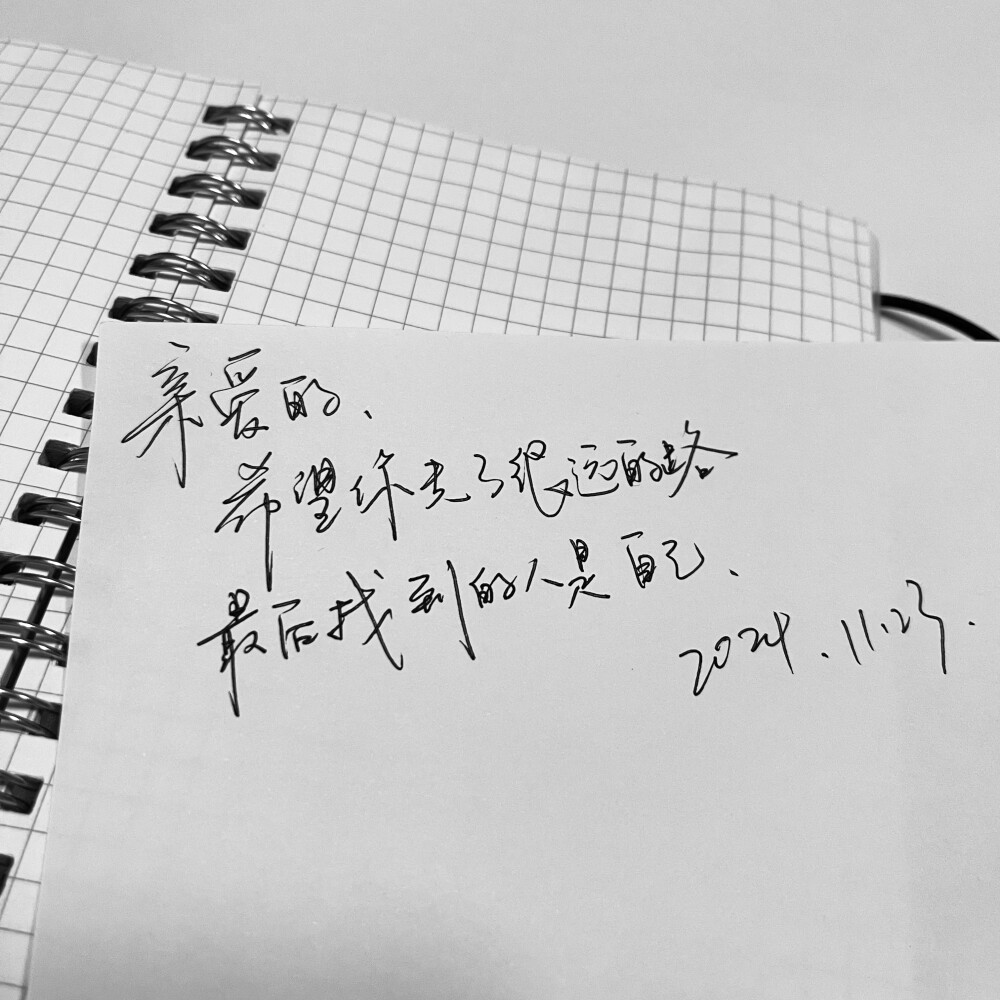 亲爱的、
希望你走了很远的路
最后找到的人是自己、
2024.11.23.